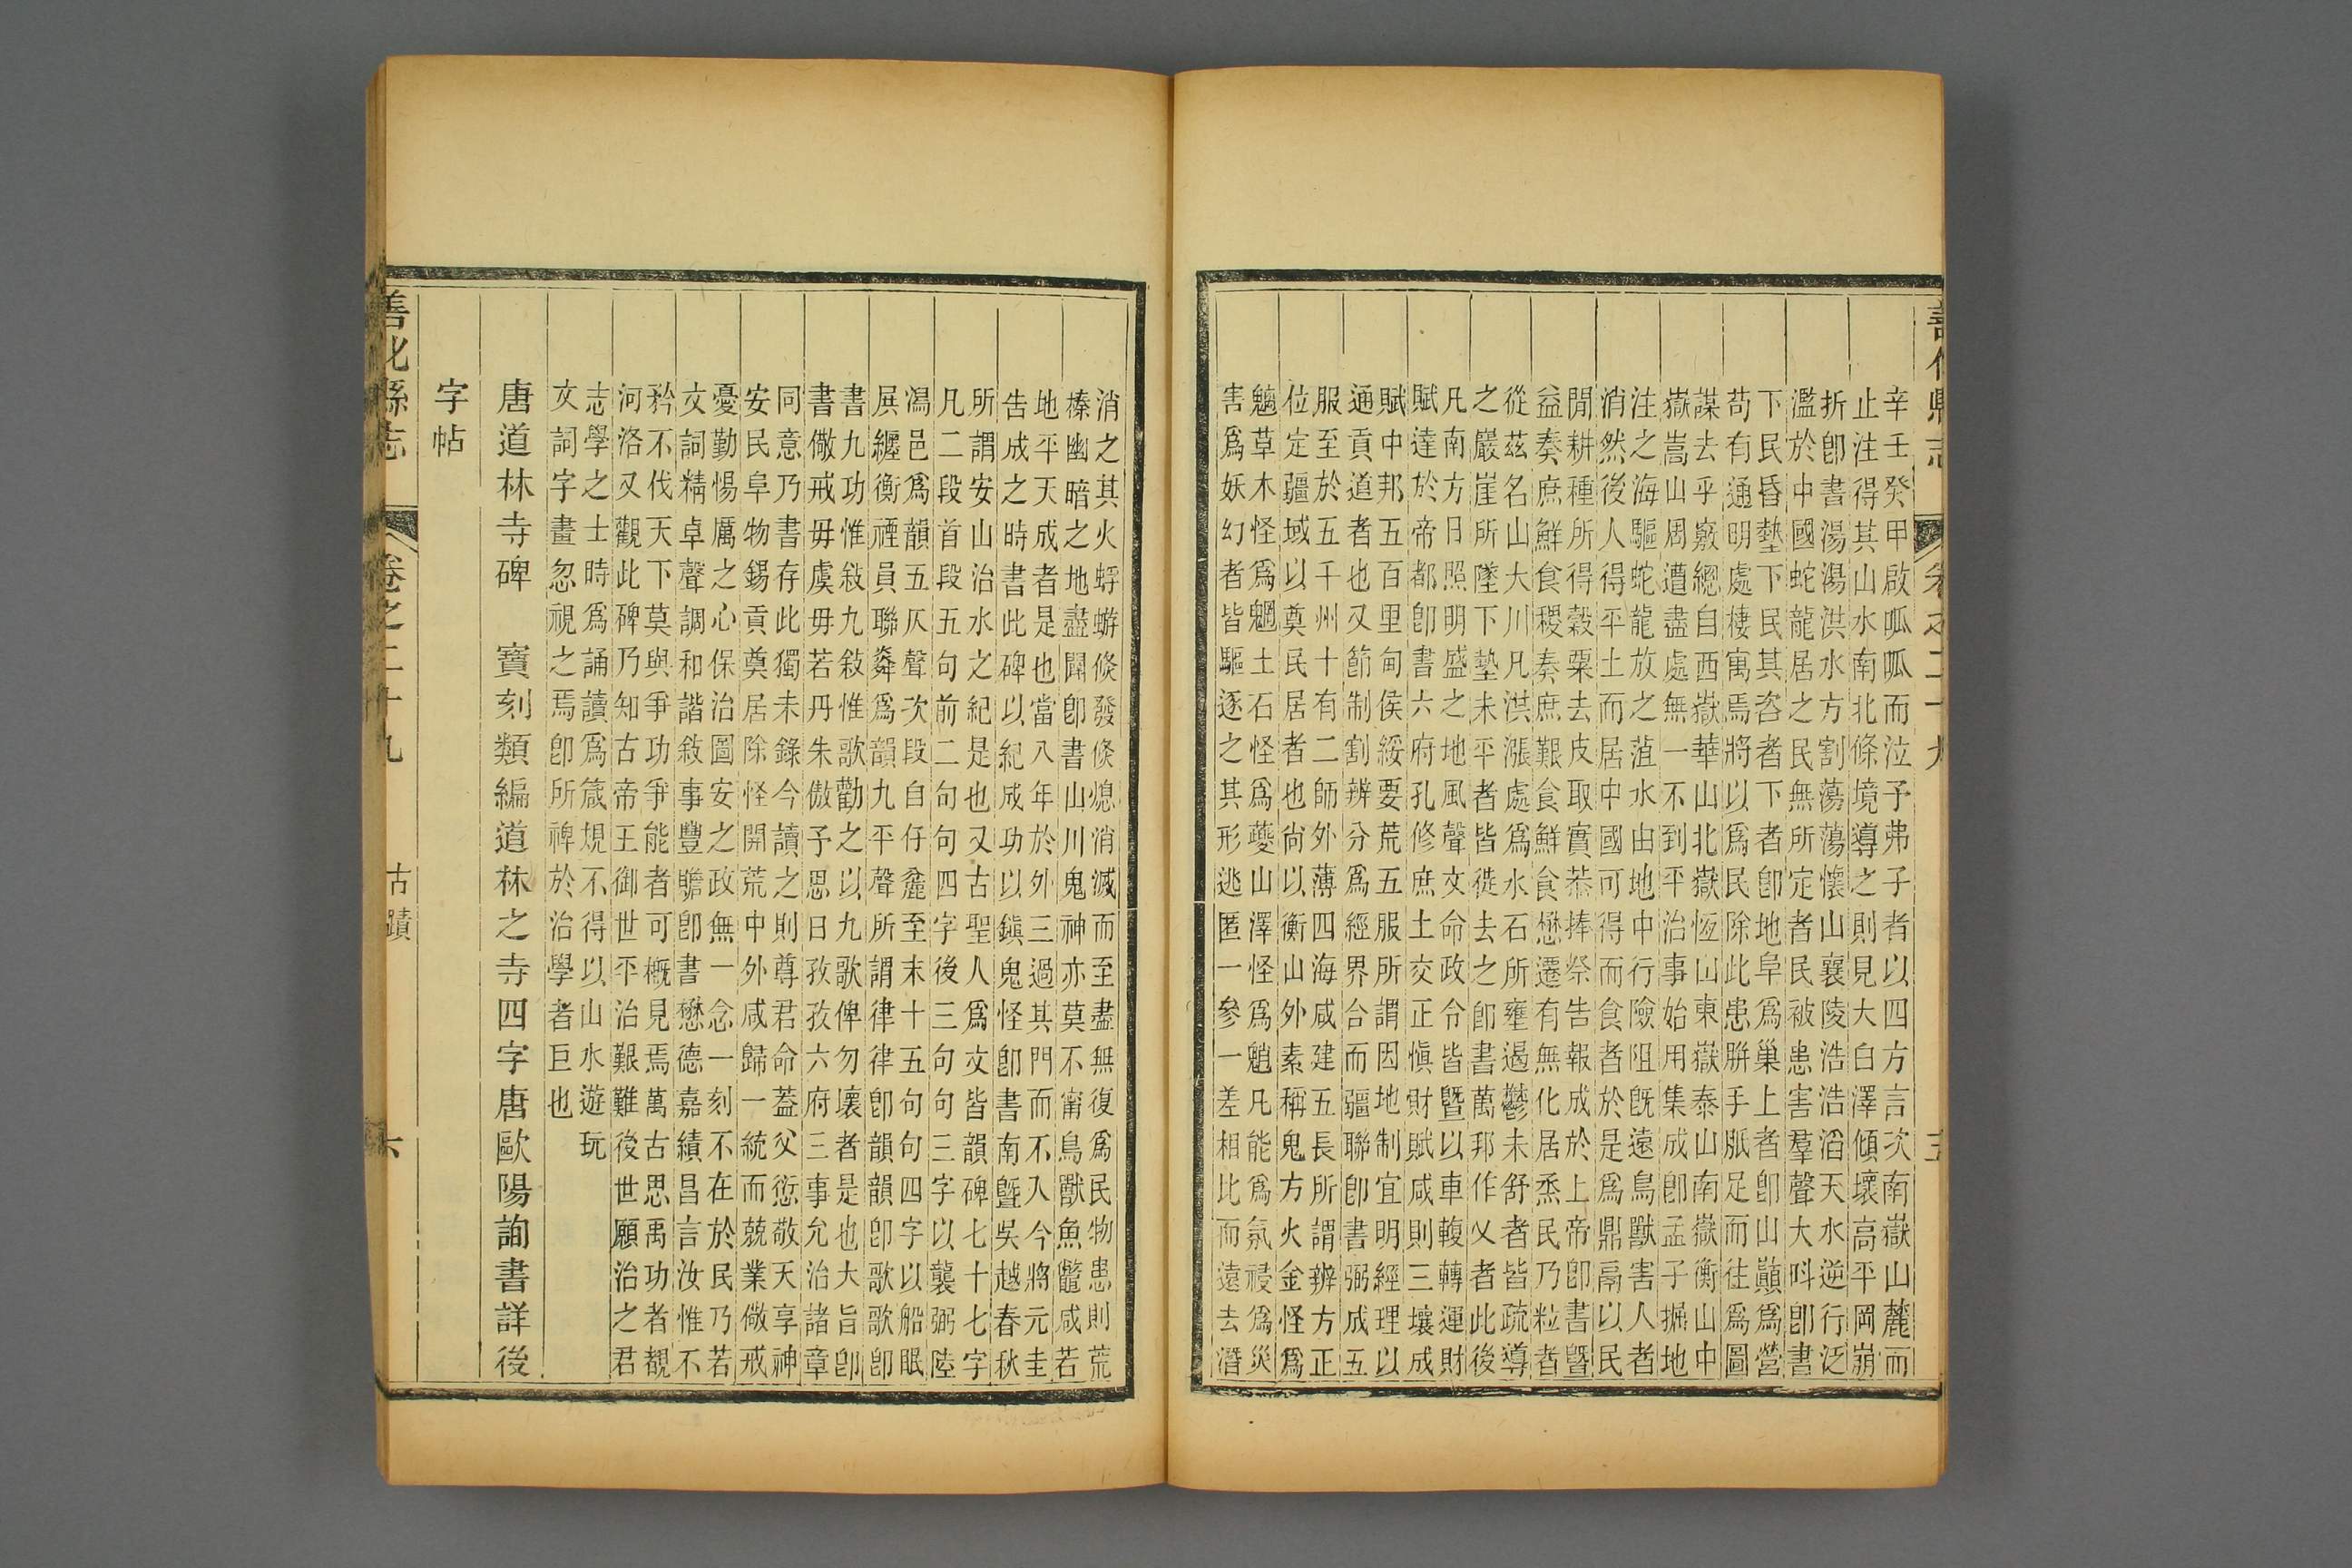 善化縣志
卷之二十九
辛壬癸甲啟呱呱而泣予弗子者以四方言次南嶽山麓而
止注得其山水南北條境導之則見大白澤傾壞高平岡崩
折卽書湯湯洪水方割蕩蕩懷山襄陵浩浩滔天水逆行泛
濫於中國蛇龍居之民無所定者民被患害羣聲大呌卽書
下民昏墊下民其咨者下者卽地阜爲巢上者卽山巔爲營
苟有通明處棲寓焉將以爲民除此患胼手胝足而往爲圖
謀去乎竅總自西嶽華山北嶽恆山東嶽泰山南嶽衡山中
嶽嵩山周遭盡處無一不到平治事始用集成卽孟子掘地
注之海驅蛇龍放之菹水由地中行險阻旣遠鳥獸害人者
消然後人得平土而居中國可得而食者於是爲鼎鬲以民
閒耕種所得穀粟去皮取實恭捧祭告報成於上帝卽書曁
益奏庶鮮食稷奏庶艱食鮮食懋遷有無化居烝民乃粒者
從茲名山大川凡洪漲處爲水石所壅遏鬱未舒者皆疏導
之嚴崖所墜下墊未平者皆徙去之卽書萬邦作乂者此後
凡南方日照明盛之地風聲文命政令皆曁以車輹轉運財
賦達於帝都卽書六府孔修庶土交正愼財賦咸則三壤成
賦中邦五百里甸侯綏要荒五服所謂因地制宜明經理以
通貢道者也又節制割辨分爲經界合而疆聯卽書弼成五
服至於五千州十有二師外薄四海咸建五長所謂辨方正
位定疆域以奠民居者也尙以衡山外素稱鬼方火金怪爲
魑草木怪爲魍土石怪爲夔山澤怪爲魈凡能爲氛祲爲災
害爲妖幻者皆驅逐之其形逃匿一參一差相比而遠去潛
消之其火蜉蝣倏發倏熄消滅而至盡無復爲民物患則荒
榛幽暗之地盡闢卽書山川鬼神亦莫不甯鳥獸魚鼈咸若
地平天成者是也當八年於外三過其門而不入今將元圭
告成之時書此碑以紀成功以鎭鬼怪卽書南曁吳越春秋
所謂安山治水之紀是也又古聖人爲文皆韻碑七十七字
凡二段首段五句前二句句四字後三句句三字以襲弼陸
潟邑爲韻五仄聲次段自仔龕至末十五句句四字以船眠
屐纏衡禋員聯粦爲韻九平聲所謂律律卽韻韻卽歌歌卽
書九功惟敍九敍惟歌勸之以九歌俾勿壞者是也大旨卽
書儆戒毋虞毋若丹朱傲予思日孜孜六府三事允治諸章
同意乃書存此獨未錄今讀之則尊君命蓋父愆敬天享神
安民阜物錫貢奠居除怪開荒中外咸歸一統而兢業儆戒
憂勤惕厲之心保治圖安之政無一念一刻不在於民乃若
文詞精卓聲調和諧敘事豐贍卽書懋德嘉績昌言汝惟不
矜不伐天下莫與爭功爭能者可槪見焉萬古思禹功者覩
河洛又觀此碑乃知古帝王御世平治艱難後世願治之君
志學之士時爲誦讀爲箴規不得以山水遊玩
文詞字畫忽視之焉卽所裨於治學者巨也
唐道林寺碑　寶刻類編道林之寺四字唐歐陽詢書詳後
字帖
善化縣志
卷之二十九
古蹟
六